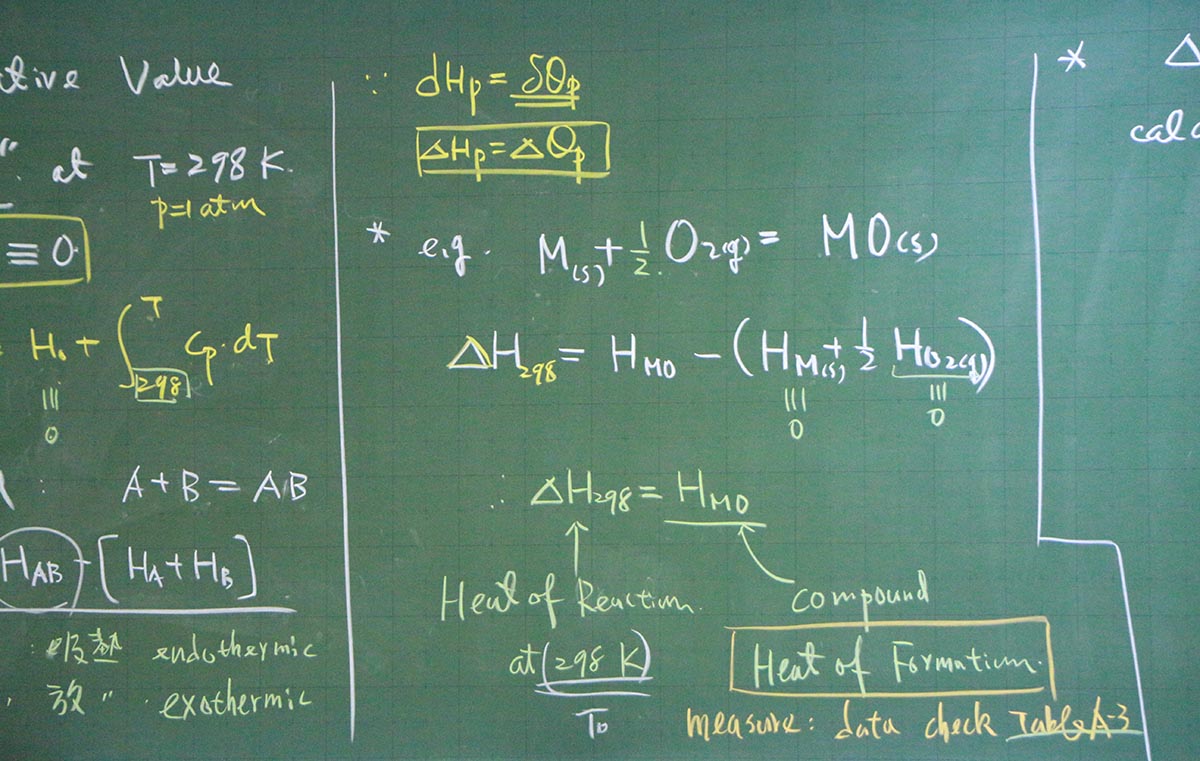 ative Value
" at T=298 K.
p=1 atm
≡ 0
= H₀ + ∫₂₉₈ᵀ Cp·dT
≡
0
: A + B = AB
H_AB - [H_A + H_B]
: 吸熱 endothermic
放 〃 exothermic
∵ dHp = δQp
ΔHp = ΔQp
* e.g. M(s) + 1/2 O₂(g) = MO(s)
ΔH₂₉₈ = H_MO - (H_M(s) + 1/2 H_O₂(g))
≡ ≡
0 0
∴ ΔH₂₉₈ = H_MO
Heat of Reaction.
at (298 K)
T₀
compound
Heat of Formation.
measure: data check Table A-3
* Δ
calc